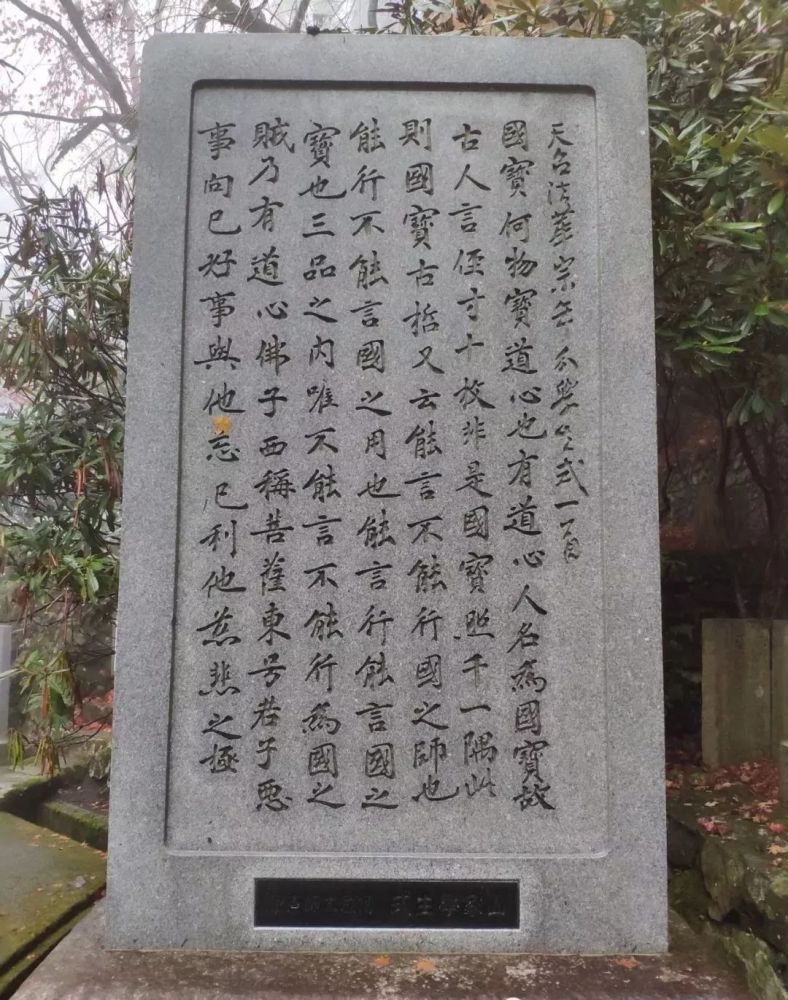 天台法華宗年分學生式一首
國寶何物寶道心也有道心人名為國寶故
古人言徑寸十枚非是國寶照千一隅此
則國寶古哲又云能言不能行國之師也
能行不能言國之用也能言行能言國之
寶也三品之内唯不能言不能行為國之
賊乃有道心佛子西稱菩薩東号君子惡
事向己好事與他忘己利他慈悲之極
山家學生式